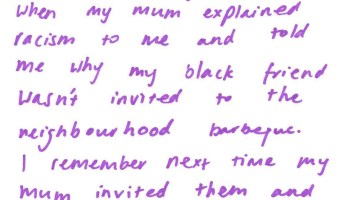 when my mum explained
racism to me and told
me why my black friend
wasn't invited to the
neighbourhood barbeque.
I remember next time my
mum invited them and